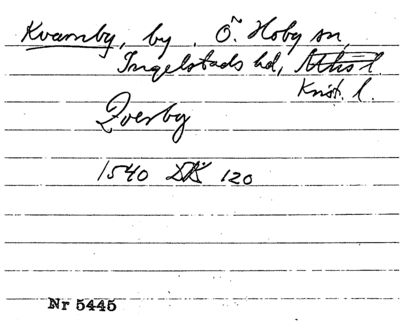 Kvarnby, by. Ö. Hoby sn,
Ingelstads hd, Mlhs l.
Krist. l.
Qverby
1540 DK 120
Nr 5445